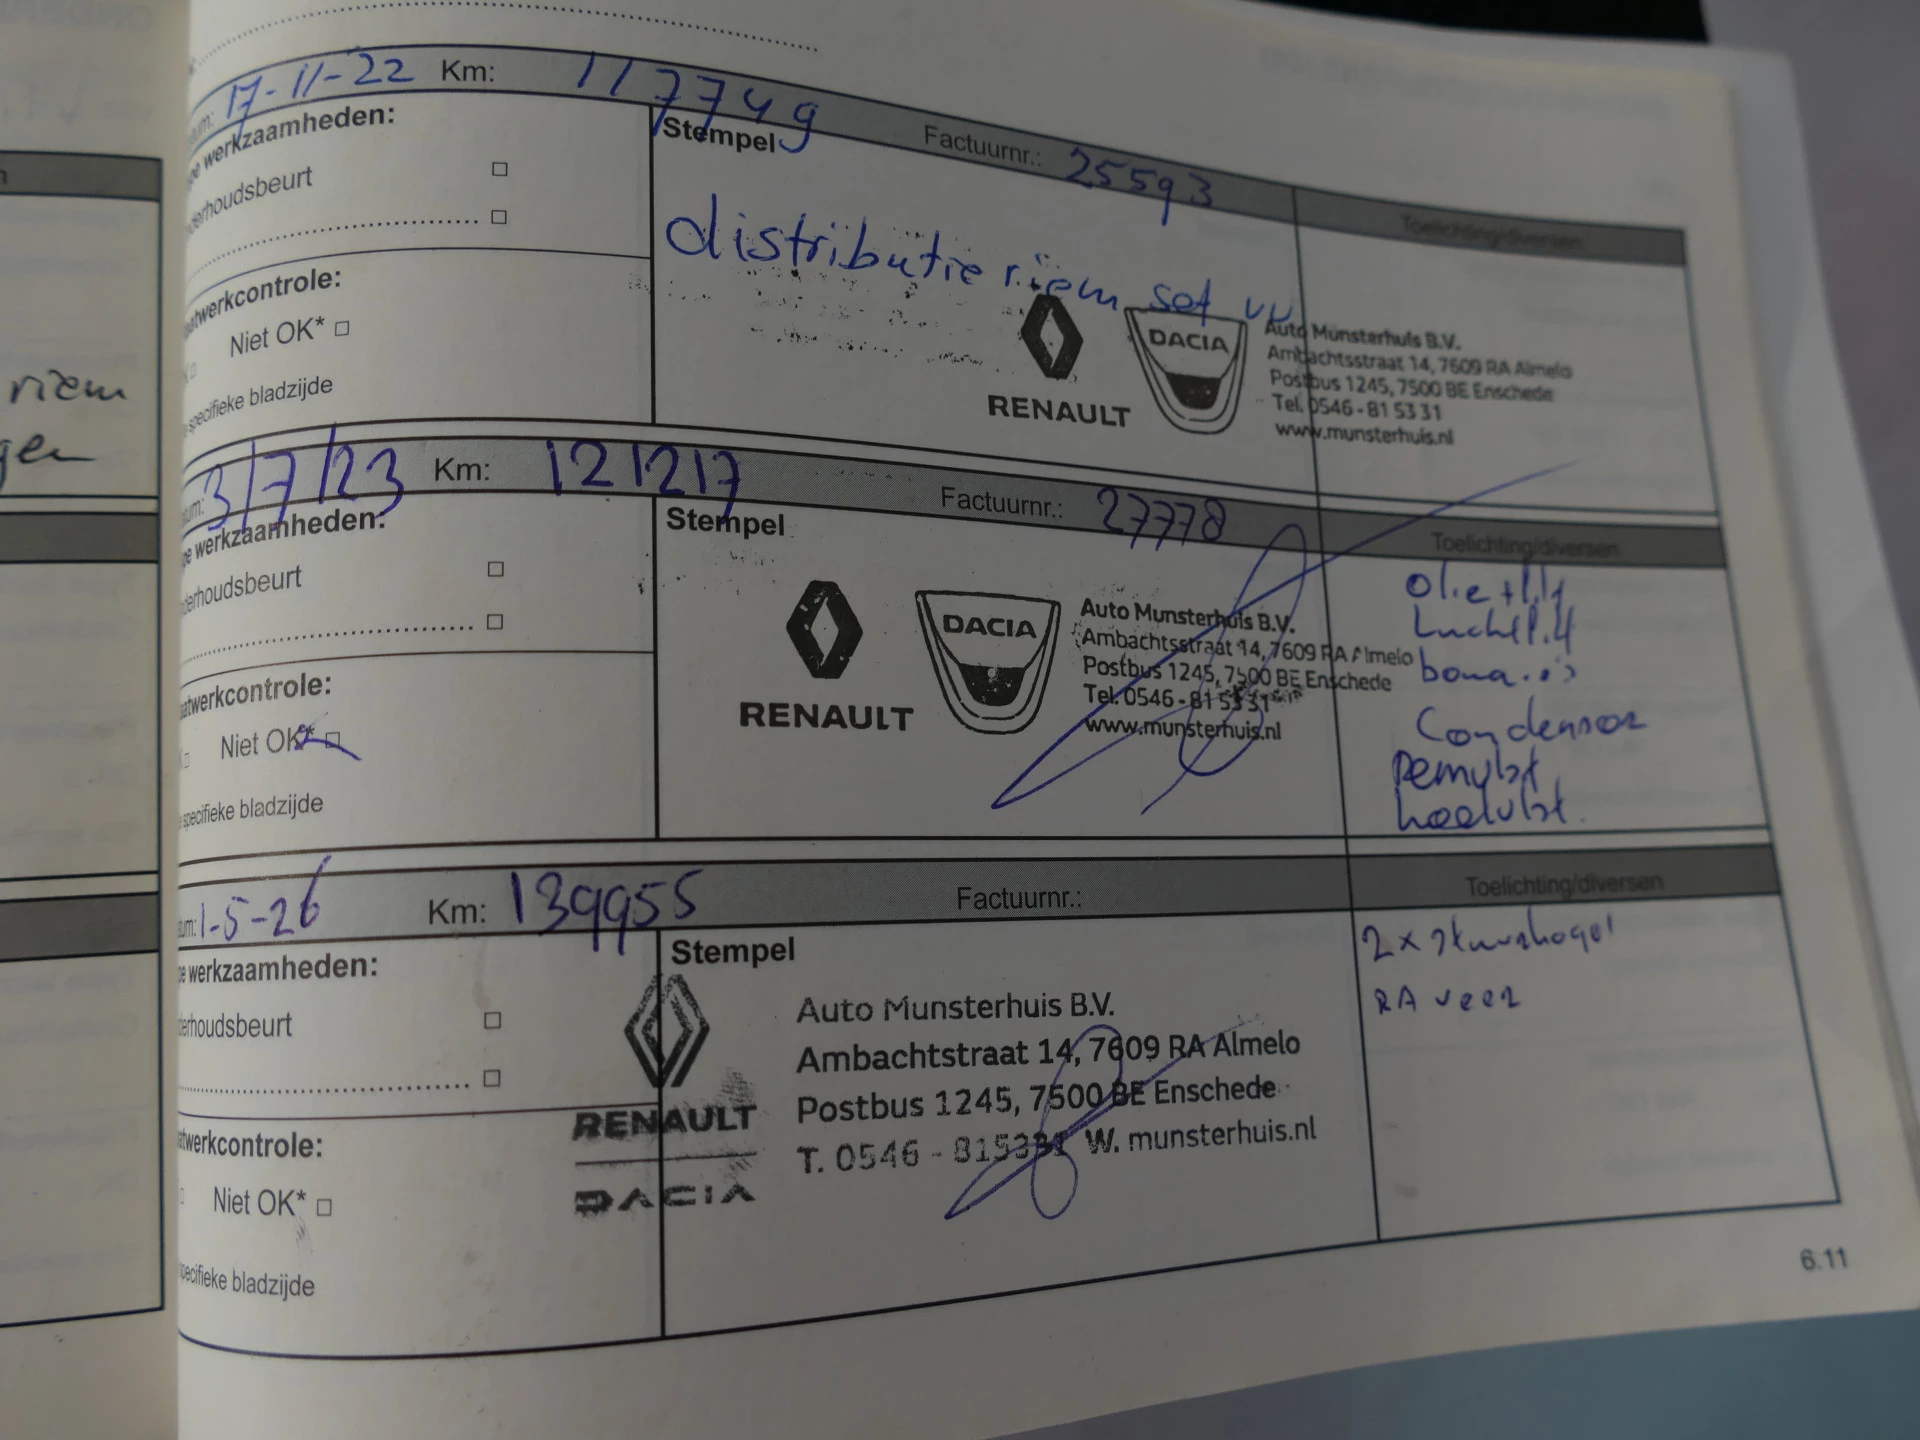 17-11-22 Km: 117749 Factuurnr.: 25593
werkzaamheden:
Stempel
Toelichting/diversen
distributie riem set vv
RENAULT
DACIA
Auto Munsterhuis B.V.
Ambachtsstraat 14, 7609 RA Almelo
Postbus 1245, 7500 BE Enschede
Tel. 0546 - 81 53 31
www.munsterhuis.nl
Niet OK*
specifieke bladzijde
riem
3/7/23 Km: 121217 Factuurnr.: 27778
werkzaamheden:
Stempel
Toelichting/diversen
RENAULT
DACIA
Auto Munsterhuis B.V.
Ambachtsstraat 14, 7609 RA Almelo
Postbus 1245, 7500 BE Enschede
Tel. 0546 - 81 53 31
www.munsterhuis.nl
Condensor
Niet OK*
specifieke bladzijde
1-5-26 Km: 139955 Factuurnr.:
werkzaamheden:
Stempel
Toelichting/diversen
2x stuurkogel
RA veer
RENAULT
DACIA
Auto Munsterhuis B.V.
Ambachtstraat 14, 7609 RA Almelo
Postbus 1245, 7500 BE Enschede
T. 0546 - 815331 W. munsterhuis.nl
Niet OK*
bladzijde
6.11